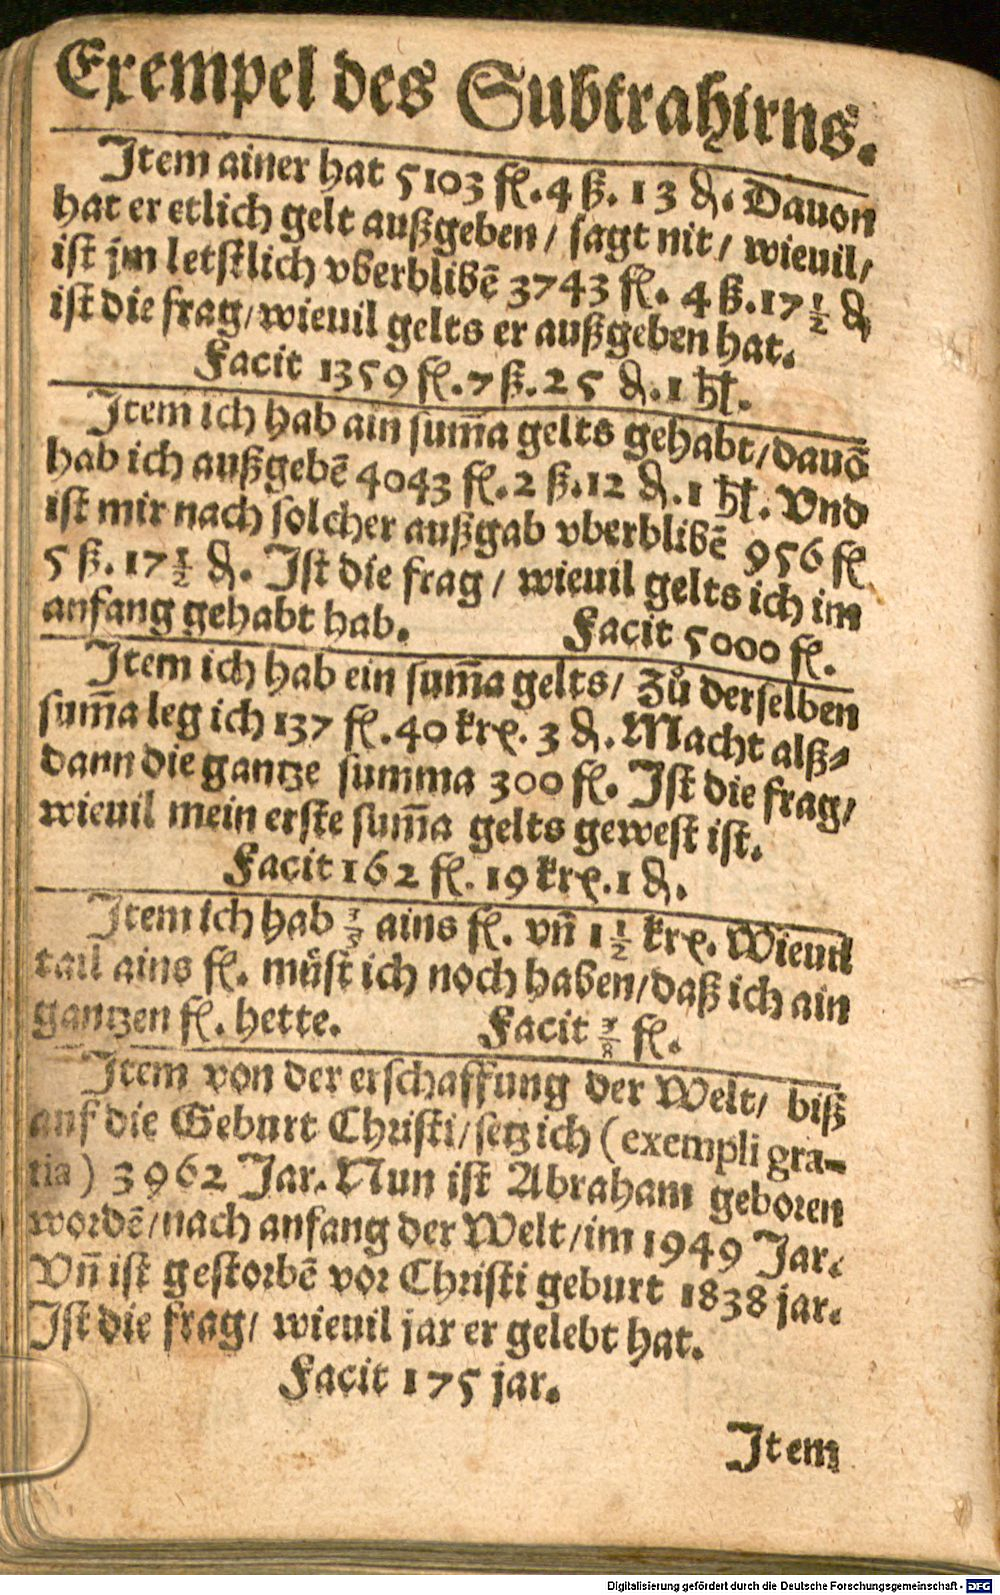 Exempel des Subtrahirns.
Item ainer hat 5103 fl. 4 ß. 13 ₰. Dauon
hat er etlich gelt außgeben / sagt nit / wieuil /
ist jm letstlich vberblibē 3743 fl. 4 ß. 17 1/2 ₰
ist die frag / wieuil gelts er außgeben hat.
Facit 1359 fl. 7 ß. 25 ₰. 1 hl.
Item ich hab ain sum̄a gelts gehabt / dauō
hab ich außgebē 4043 fl. 2 ß. 12 ₰. 1 hl. Vnd
ist mir nach solcher außgab vberblibē 956 fl
5 ß. 17 1/2 ₰. Ist die frag / wieuil gelts ich im
anfang gehabt hab. Facit 5000 fl.
Item ich hab ein sum̄a gelts / Zů derselben
sum̄a leg ich 137 fl. 40 krx. 3 ₰. Macht alß-
dann die gantze summa 300 fl. Ist die frag /
wieuil mein erste sum̄a gelts gewest ist.
Facit 162 fl. 19 krx. 1 ₰.
Item ich hab ains fl. vn̄ 1 1/2 krx. Wieuil
tail ains fl. můst ich noch haben / daß ich ain
gantzen fl. hette. Facit 3/8 fl.
Item von der erschaffung der Welt / biß
auf die Geburt Christi / setz ich (exempli gra-
tia) 3962 Jar. Nun ist Abraham geboren
wordē / nach anfang der Welt / im 1949 Jar.
Vn̄ ist gestorbē vor Christi geburt 1838 jar.
Ist die frag / wieuil jar er gelebt hat.
Facit 175 jar.
Item
Digitalisierung gefördert durch die Deutsche Forschungsgemeinschaft - DFG